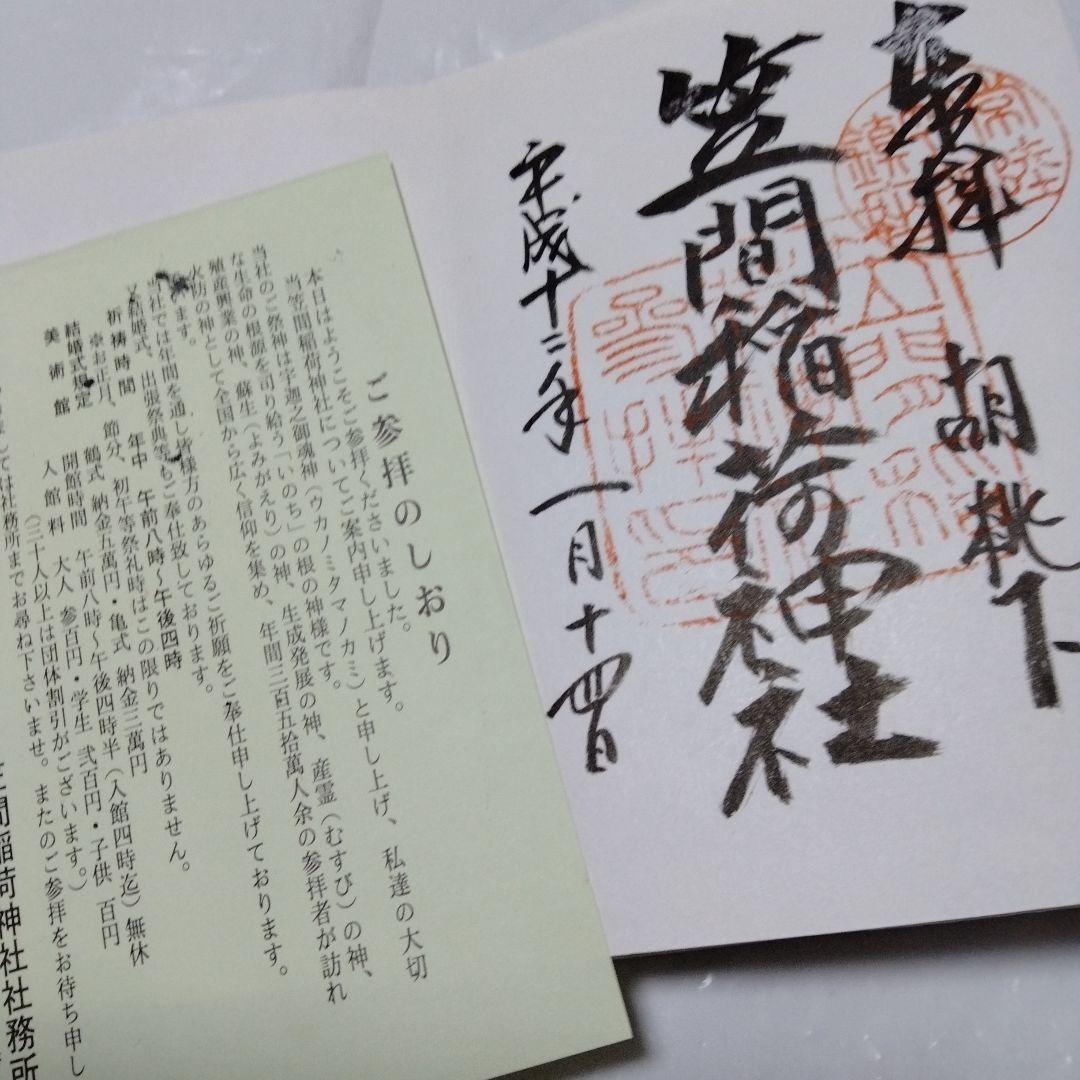 奉拝
胡桃下
笠間稲荷神社
平成十二年一月十四日
ご参拝のしおり
本日はようこそご参拝くださいました。
当笠間稲荷神社についてご案内申し上げます。
当社のご祭神は宇迦之御魂神（ウカノミタマノカミ）と申し上げ、私達の大切
な生命の根源を司り給う「いのち」の根の神様です。
殖産興業の神、蘇生（よみがえり）の神、生成発展の神、産霊（むすび）の神、
火防の神として全国から広く信仰を集め、年間三百五拾萬人余の参拝者が訪れ
ます。
当社では年間を通し皆様方のあらゆるご祈願をご奉仕申し上げております。
又結婚式、出張祭典等もご奉仕致しております。
祈祷時間 年中 午前八時～午後四時
お正月、節分、初午等祭礼時はこの限りではありません。
結婚式規定 鶴式 納金五萬円・亀式 納金三萬円
美術館 開館時間 午前八時～午後四時半（入館四時迄）無休
入館料 大人 参百円・学生 弐百円・子供 百円
（三十人以上は団体割引がございます。）
ては社務所までお尋ね下さいませ。またのご参拝をお待ち申し
間稲荷神社社務所